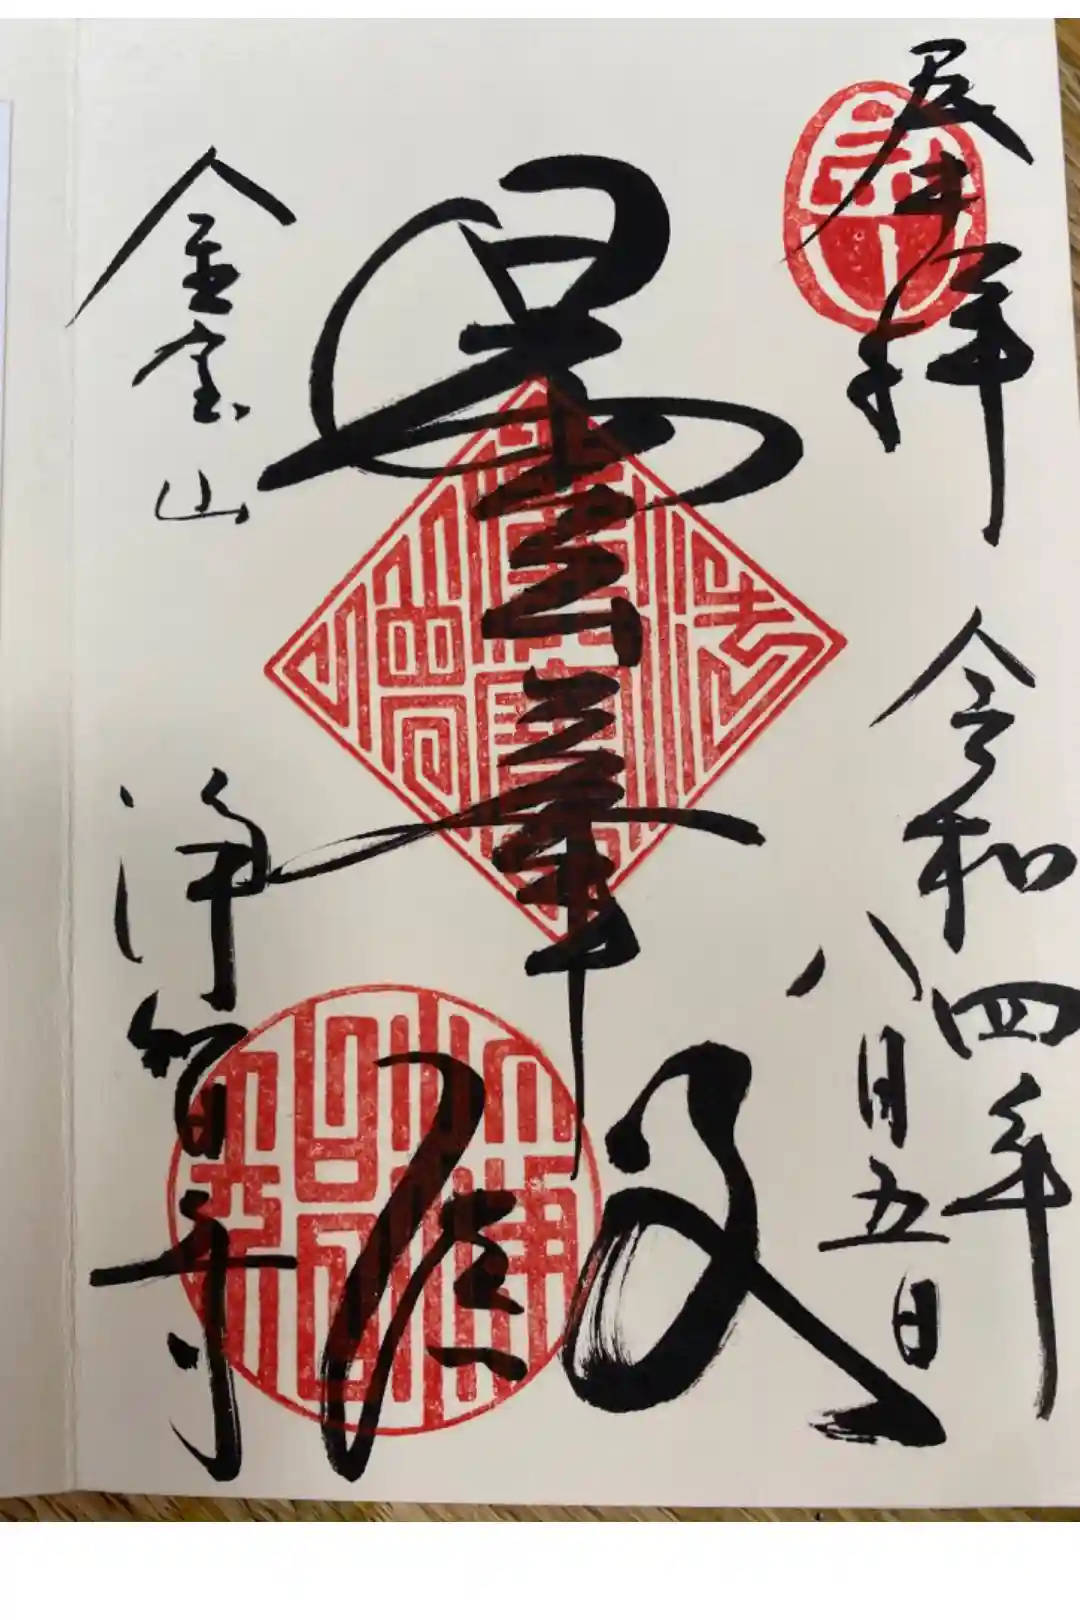 拝
令和四年
八月五日
曇華殿
金宝山
浄智寺